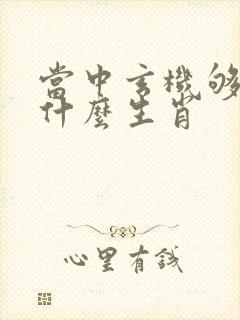 當中玄機够
什麼生肖
心里有錢